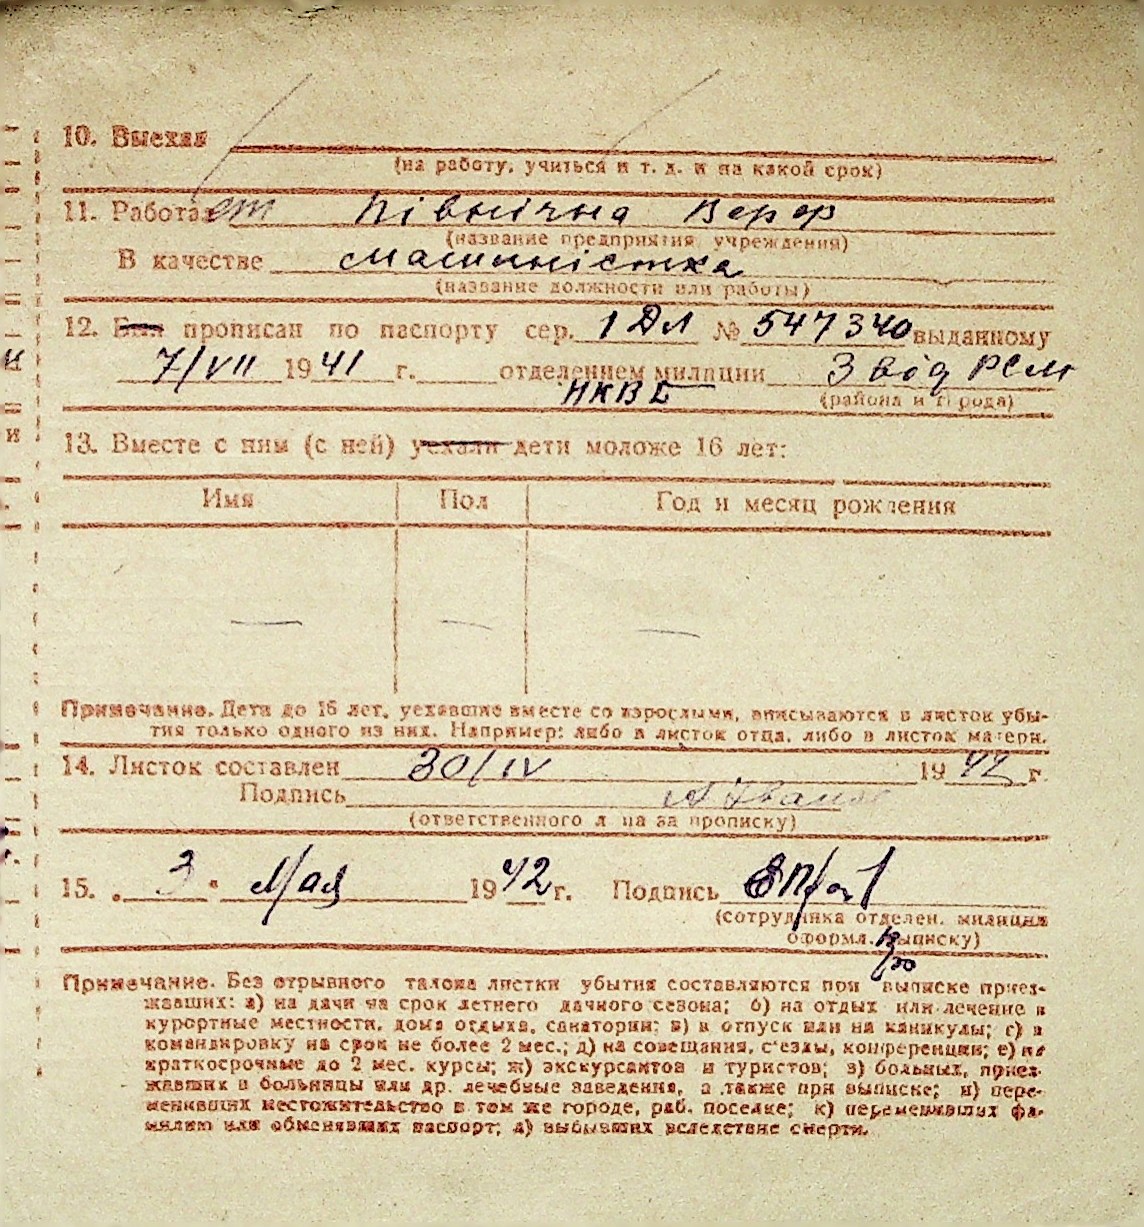 10. Выехал
(на работу, учиться и т. д. и на какой срок)
11. Работает Північна Верф
(название предприятия, учреждения)
В качестве машиністка
(название должности или работы)
12. Был прописан по паспорту сер. 1 Дл № 547340 выданному
7/VII 1941 г. отделением милиции 3 від РСМ
НКВД (района и города)
13. Вместе с ним (с ней) уехали дети моложе 16 лет:
Имя Пол Год и месяц рождения
— — —
Примечание. Дети до 16 лет, уехавшие вместе со взрослыми, вписываются в листок убы-
тия только одного из них. Например: либо в листок отца, либо в листок матери.
14. Листок составлен 30/IV 1942 г.
Подпись
(ответственного лица за прописку)
15. „3" Мая 1942 г. Подпись
(сотрудника отделен. милиции
оформл. выписку)
Примечание. Без отрывного талона листки убытия составляются при выписке приез-
жавших: а) на дачи на срок летнего дачного сезона; б) на отдых или лечение в
курортные местности, дома отдыха, санатории; в) в отпуск или на каникулы; г) в
командировку на срок не более 2 мес.; д) на совещания, с'езды, конференции; е) на
краткосрочные до 2 мес. курсы; ж) экскурсантов и туристов; з) больных, приез-
жавших в больницы или др. лечебные заведения, а также при выписке; и) пере-
менивших местожительство в том же городе, раб. поселке; к) переменивших фа-
милию или обменявших паспорт; л) выбывших вследствие смерти.